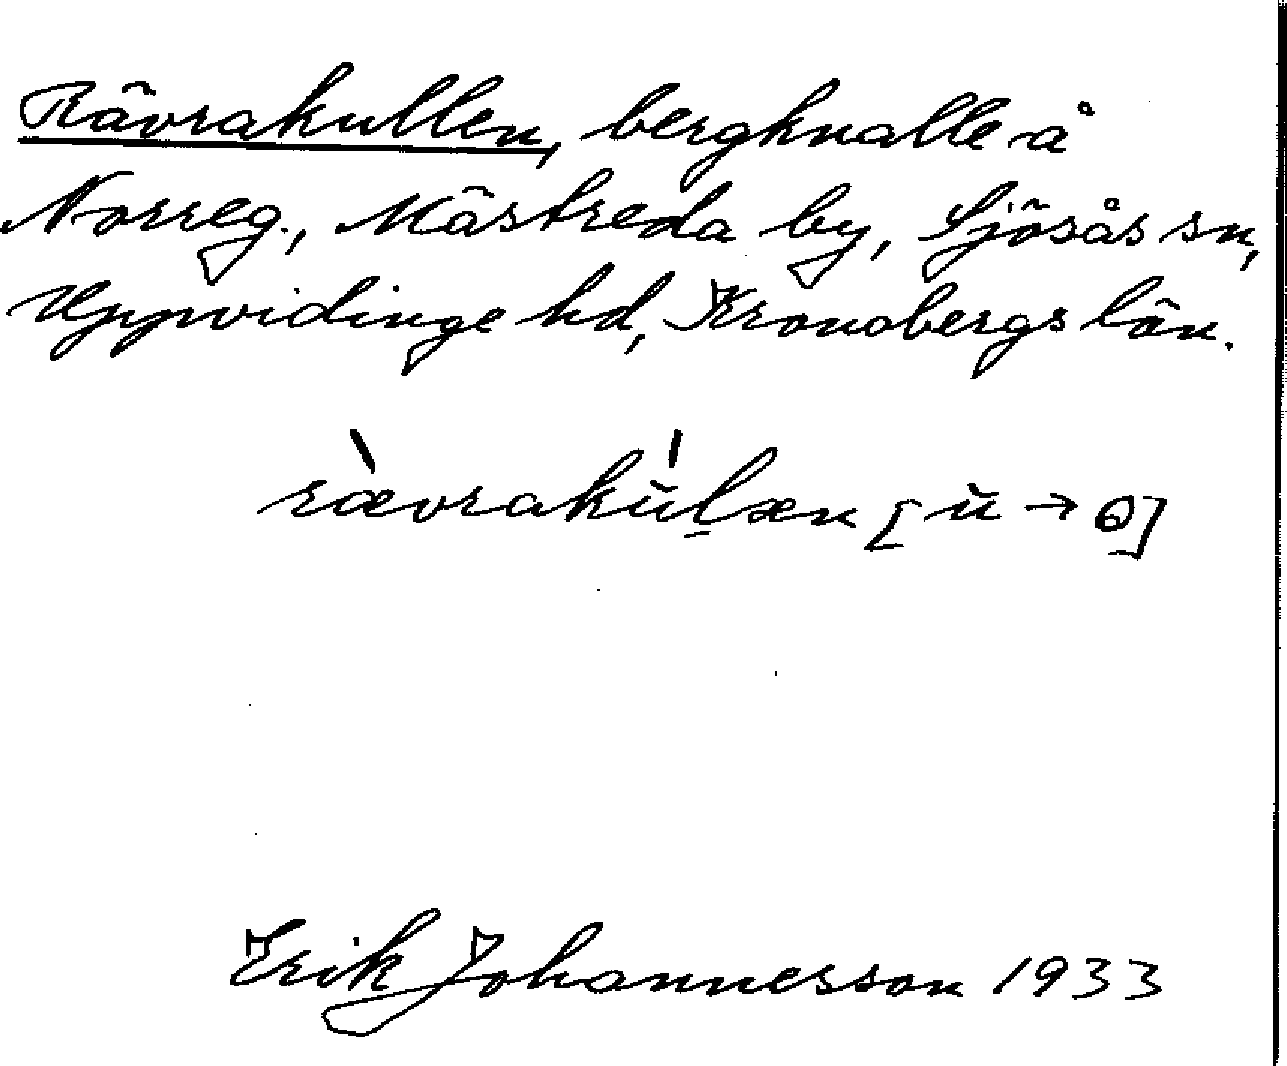 Rävrakullen, bergknalle å
Norreg., Mästreda by, Sjösås sn,
Uppvidinge hd, Kronobergs län.
rævrakŭlæn [ŭ → ɷ]
Erik Johannesson 1933